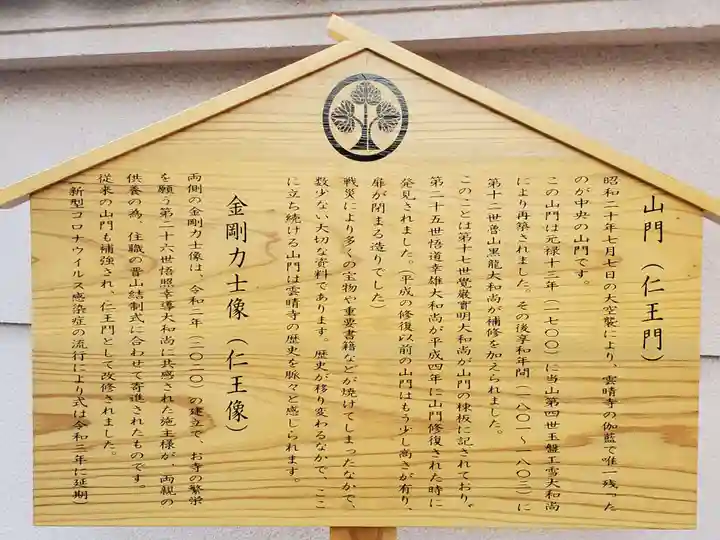 山門（仁王門）
昭和二十年七月七日の大空襲により、雲晴寺の伽藍で唯一残った
のが中央の山門です。
この山門は元禄十三年（一七〇〇）に当山第四世玉盤工雪大和尚
により再築されました。その後享和年間（一八〇一～一八〇三）に
第十二世魯山黒龍大和尚が補修を加えられました。
このことは第十七世覺巌育明大和尚が山門の棟板に記されており、
第二十五世悟道幸雄大和尚が平成四年に山門修復された時に
発見されました。（平成の修復以前の山門はもう少し高さが有り、
扉が閉まる造りでした）
戦災により多くの宝物や重要書籍などが焼けてしまったなかで、
数少ない大切な資料であります。歴史が移り変わるなかで、ここ
に立ち続ける山門は雲晴寺の歴史を脈々と感じられます。
金剛力士像（仁王像）
両側の金剛力士像は、令和二年（二〇二〇）の建立で、お寺の繁栄
を願う第二十六世悟照幸導大和尚に共感された施主様が、両親の
供養の為、住職の晋山結制式に合わせて寄進されたものです。
従来の山門も補強され、仁王門として改修されました。
（新型コロナウイルス感染症の流行により式は令和三年に延期）